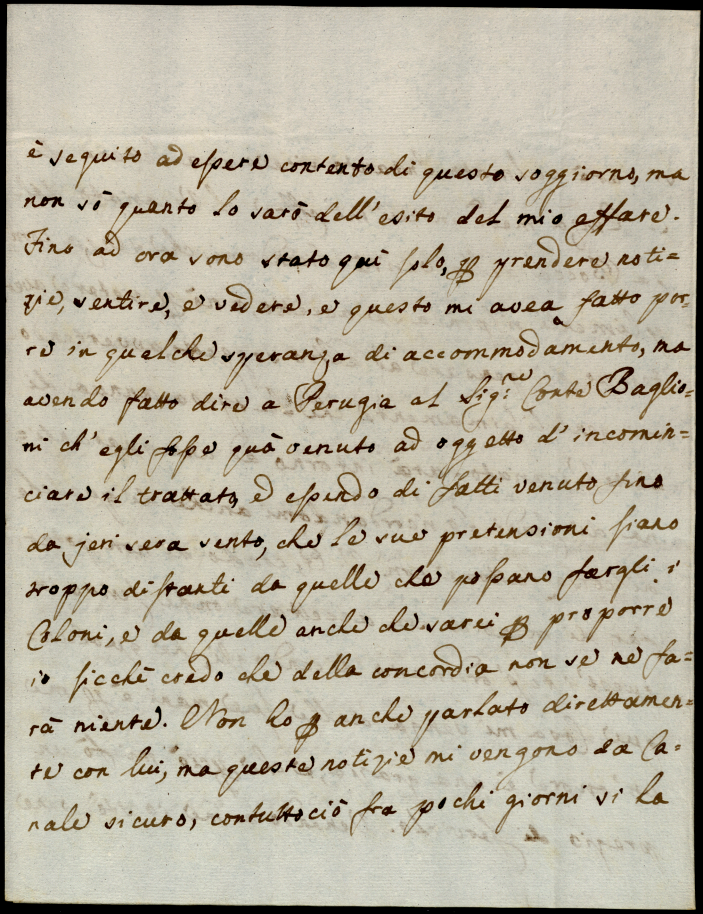 è seguito ad essere contento di questo soggiorno, ma
non sò quanto lo sarò dell' esito del mio affare.
Fino ad ora sono stato quì solo, ꝑ prendere noti=
zie, sentire, e vedere, e questo mi avea fatto por=
re in qualche speranza di accommodamento, ma
avendo fatto dire a Perugia al Sig.re Conte Baglio=
ni ch' egli fosse quà venuto ad oggetto d' incomin=
ciare il trattato, ed essendo di fatti venuto fino
da jeri sera sento, che le sue pretensioni siano
troppo distanti da quelle che possano fargli i
Coloni, e da quelle anche che sarei ꝑ proporre
io sicchè credo che della concordia non se ne fa=
rà niente. Non ho ꝑ anche parlato direttamen=
te con lui, ma queste notizie mi vengono da Ca=
nale sicuro, contuttociò fra pochi giorni si ha